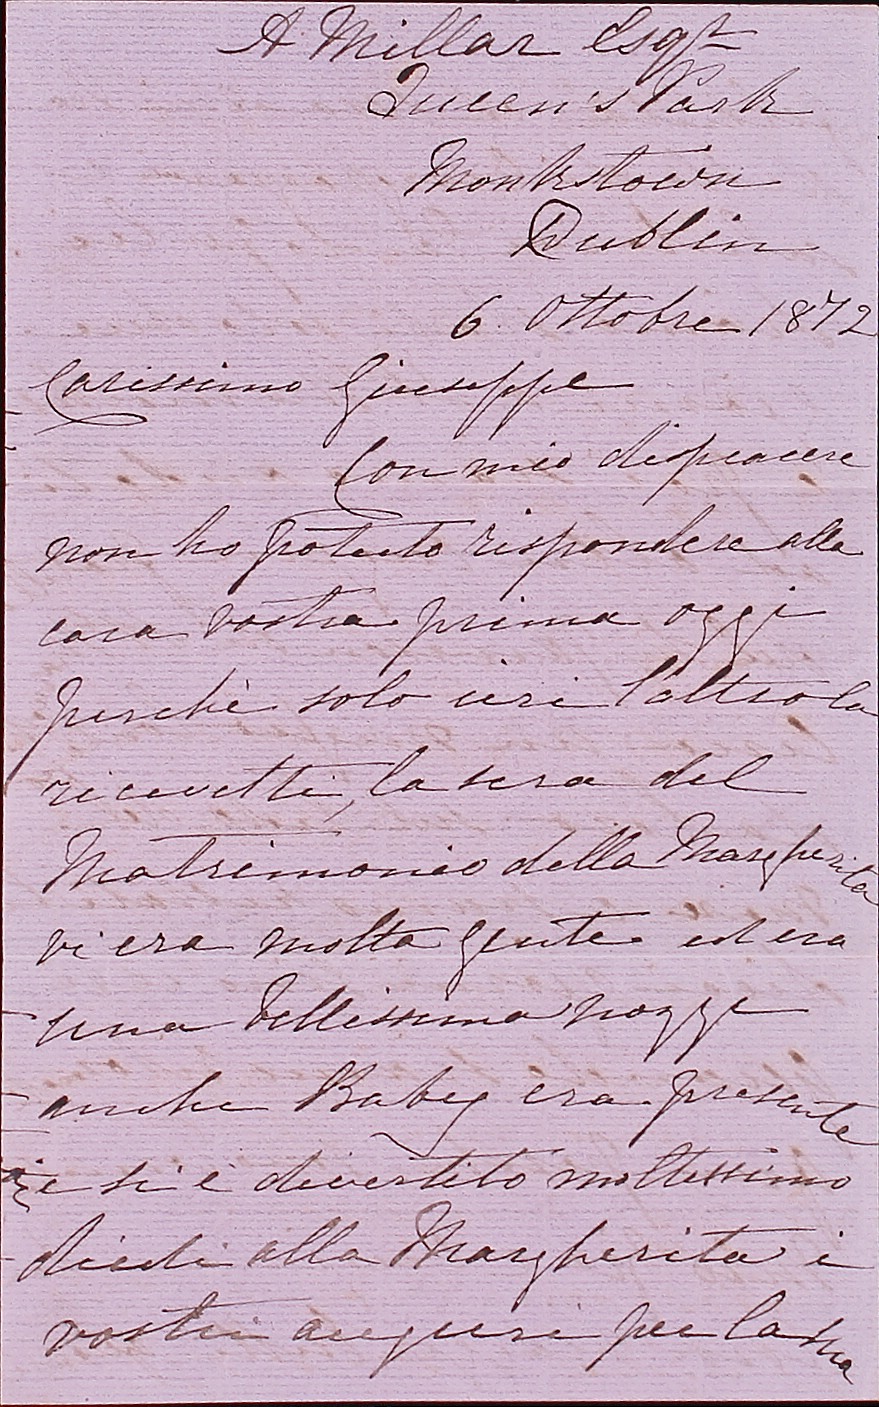 A Millar Esqr
Queen's Park
Monkstown
Dublin
6. Ottobre 1872
Carissimo Giuseppe
Con mio dispiacere
non ho potuto rispondere alla
cara vostra prima oggi
perchè solo ieri l'altro la
ricevetti, la sera del
Matrimonio della Margherita
vi era molta gente ed era
una bellissima nozze
anche Babey era presente
e si è divertito moltissimo
diedi alla Margherita i
vostri auguri per la sua